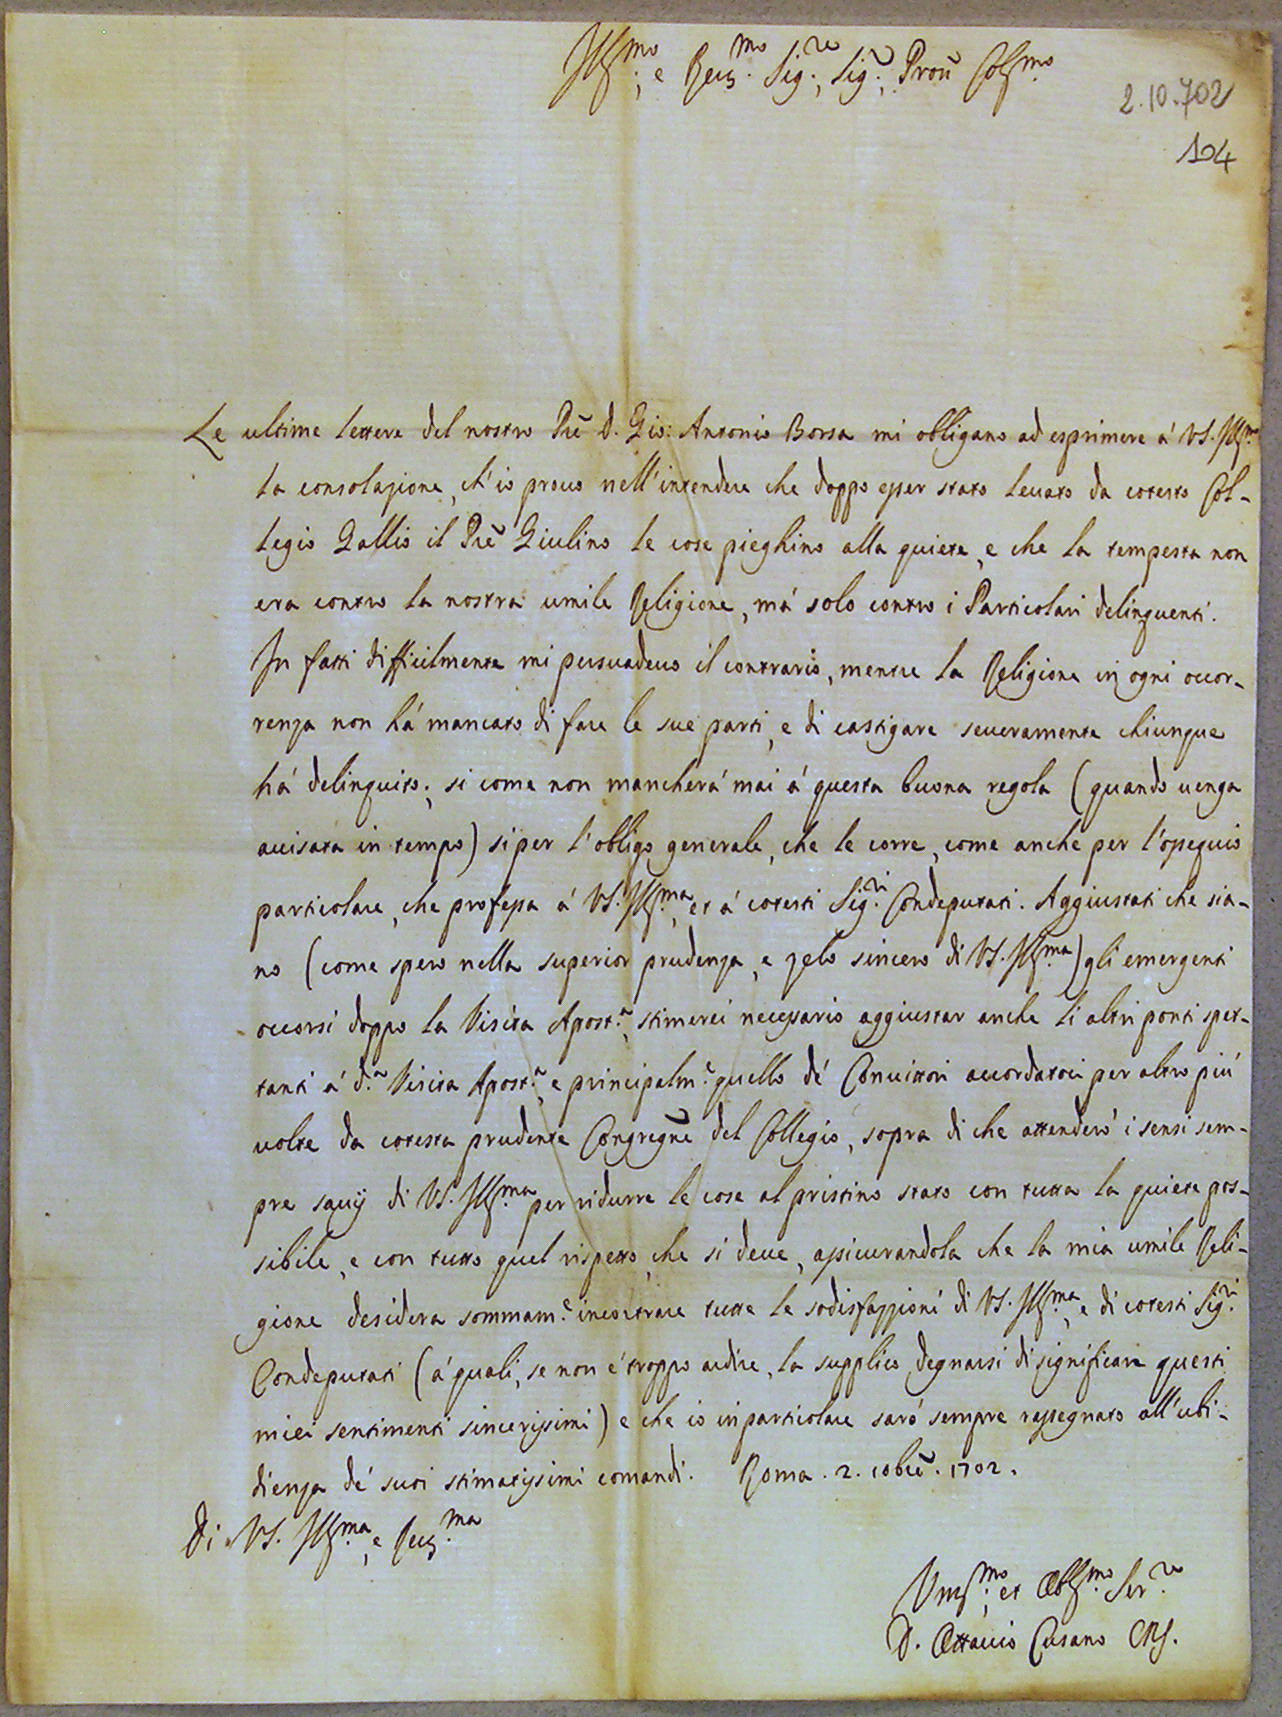 Ill.mo, e Reu.mo Sig.re, Sig.r, Pron Col.mo
2.10.702
104
Le ultime lettere del nostro Prē D. Gio: Antonio Borsa mi obligano ad esprimere á VS. Ill.ma
la consolazione, ch'io prouo nell'intendere che doppo esser stato leuato da cotesto Col-
legio Gallio il Prē Giulino le cose pieghino alla quiete, e che la tempesta non
era contro la nostra umile Religione, má solo contro i Particolari delinquenti.
In fatti difficilmente mi persuadeuo il contrario, mentre la Religione in ogni occor-
renza non há mancato di fare le sue parti, e di castigare seueramente chiunque
há delinquito; si come non mancherá mai á questa buona regola (quando uenga
auisata in tempo) si per l'obligo generale, che le corre, come anche per l'ossequio
particolare, che professa á VS. Ill.ma, et á cotesti Sig.ri Condeputati. Aggiustati che sia-
no (come spero nella superior prudenza, e zelo sincero di VS. Ill.ma) gli emergenti
occorsi doppo la Visita Apost.a, stimerei necessario aggiustar anche li altri ponti spet-
tanti á d.a Visita Apost.a, e principalm.e quello dé Conuittori accordatoci per altro piú
uolte da cotesta prudente Congregnē del Collegio, sopra di che attenderó i sensi sem-
pre sauij di VS. Ill.ma per ridurre le cose al pristino stato con tutta la quiete pos-
sibile, e con tutto quel rispetto, che si deue, assicurandola che la mia umile Reli-
gione desidera sommam.e incontrare tutte le sodisfazzioni di VS. Ill.ma, e di cotesti Sig.ri
Condeputati (á quali, se non é troppo ardire, la supplico degnarsi di significare questi
miei sentimenti sincerissimi) e che io in particolare saró sempre rassegnato all'ubi-
dienza dé suoi stimatissimi comandi. Roma. 2. 10brē. 1702.
Di VS. Ill.ma, e Reu.ma
Um.mo, et Obl.mo Ser.re
D. Ottauio Cusano CRS.